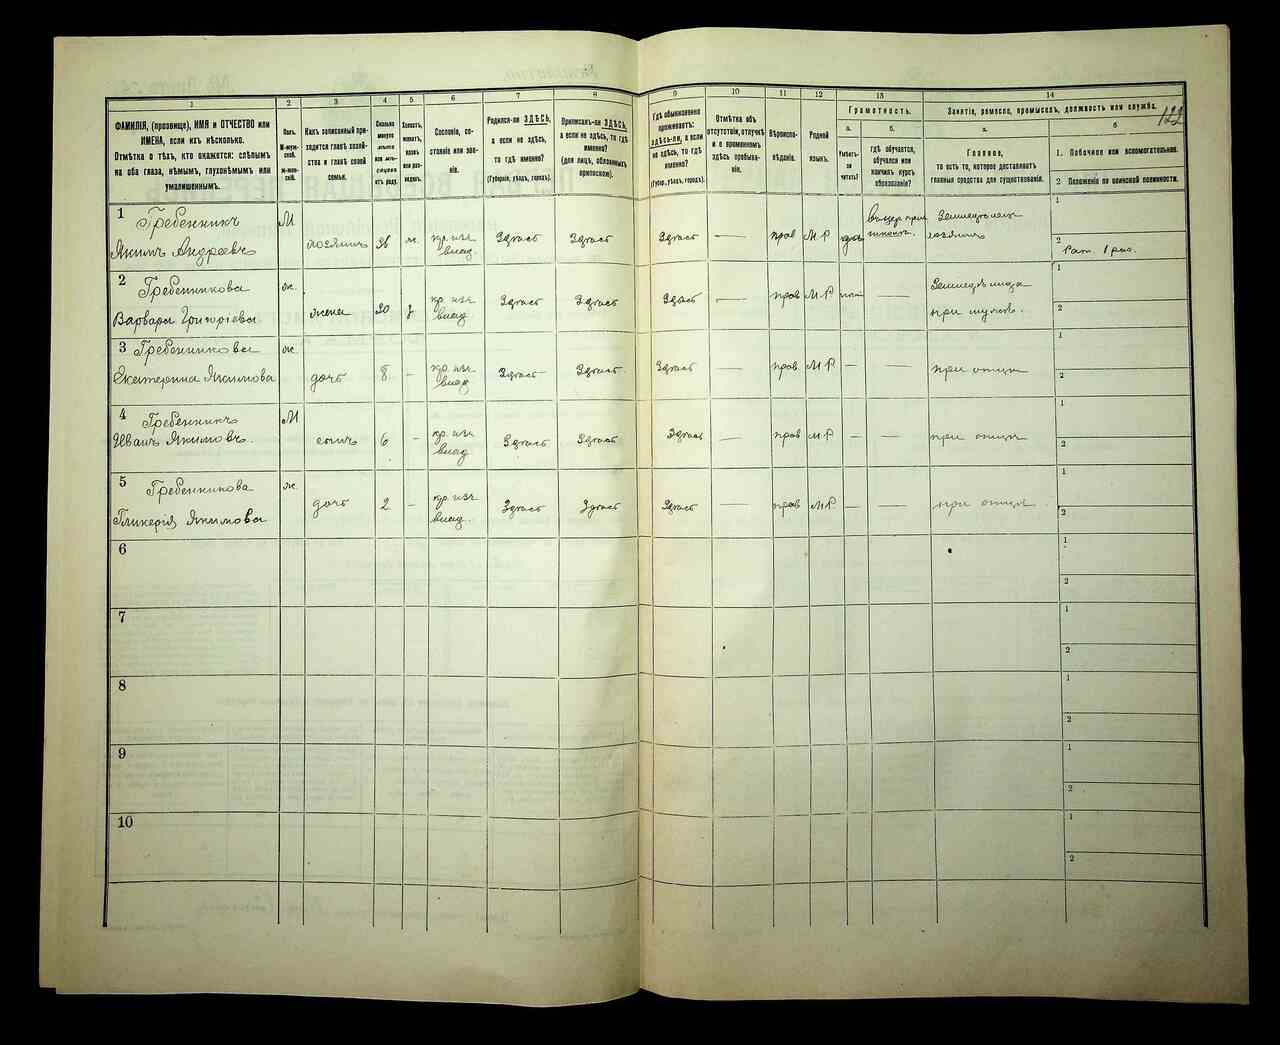 122
1
2
3
4
5
6
7
8
9
10
11
12
13
14
ФАМИЛІЯ, (прозвище), ИМЯ и ОТЧЕСТВО или
ИМЕНА, если ихъ нѣсколько.
Отмѣтка о тѣхъ, кто окажется: слѣпымъ
на оба глаза, нѣмымъ, глухонѣмымъ или
умалишеннымъ.
Полъ.
М-муж-
ской.
Ж-жен-
скій.
Какъ записанный при-
ходится главѣ хозяй-
ства и главѣ своей
семьи.
Сколько
минуло
лѣтъ
или мѣ-
сяцевъ
отъ роду.
Холостъ,
женатъ,
вдовъ
или раз-
веденъ.
Сословіе, со-
стояніе или зва-
ніе.
Родился-ли ЗДѢСЬ,
а если не здѣсь,
то гдѣ именно?
(Губернія, уѣздъ, городъ).
Приписанъ-ли ЗДѢСЬ,
а если не здѣсь, то гдѣ
именно?
(для лицъ, обязанныхъ
припискою).
Гдѣ обыкновенно
проживаетъ:
здѣсь-ли, а если
не здѣсь, то гдѣ
именно?
(Губер., уѣздъ, городъ).
Отмѣтка объ
отсутствіи, отлучкѣ
и о временномъ
здѣсь пребыва-
ніи.
Вѣроиспо-
вѣданіе.
Родной
языкъ.
Грамотность.
а.
б.
Умѣетъ-
ли
читать?
гдѣ обучается,
обучался или
кончилъ курсъ
образованія?
Занятіе, ремесло, промыселъ, должность или служба.
а.
б
Главное,
то есть то, которое доставляетъ
главныя средства для существованія.
1. Побочное или вспомогательное.
2 Положеніе по воинской повинности.
1
Гребенникъ
Якимъ Андреевъ
М
хозяинъ
36
ж.
кр. изъ
влад.
Здѣсь
Здѣсь
Здѣсь
—
прав
М Р
да
школѣ.
хозяинъ
1
2
Рат. 1 раз.
2
Гребенникова
Варвара Григорьева
ж.
жена
30
з
кр. изъ
влад
Здѣсь
Здѣсь
Здѣсь
—
прав
М Р
нѣт
—
при мужѣ.
1
2
3 Гребенникова
Екатерина Якимова
ж.
дочь
8
-
кр. изъ
влад
Здѣсь
Здѣсь
Здѣсь
прав
М Р
—
—
при отцѣ
1
2
4 Гребенникъ
Иванъ Якимовъ.
М
сынъ
6
-
кр. изъ
влад
Здѣсь
Здѣсь
Здѣсь
—
прав
М Р
—
—
при отцѣ
1
2
5 Гребенникова
Гликерія Якимова
ж.
дочь
2
-
кр. изъ
влад.
Здѣсь
Здѣсь
Здѣсь
—
прав
М Р
—
—
при отцѣ
1
2
6
1
2
7
1
2
8
1
2
9
1
2
10
1
2